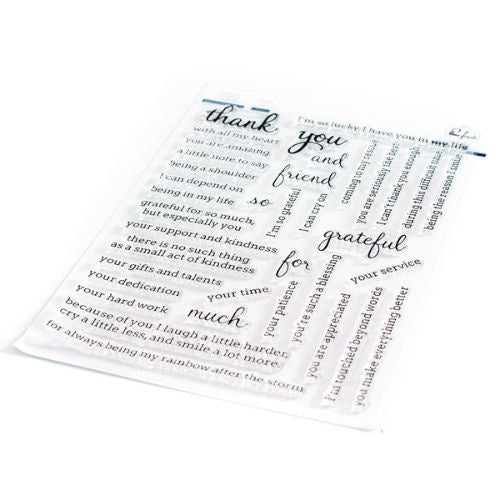 thank you
I'm so lucky I have you in my life
with all my heart
you are amazing
and
a little note to say
friend
being a shoulder
I can depend on
so
being in my life
grateful for so much,
but especially you
your support and kindness
there is no such thing
as a small act of kindness
your gifts and talents
your dedication
your time
your hard work
much
because of you I laugh a little harder,
cry a little less, and smile a lot more.
for always being my rainbow after the storm
I'm so grateful
I can cry on
coming to my rescue
you are seriously the best
I can't thank you enough
during this difficult time
being the reason I smile
grateful
for
your service
your patience
you're such a blessing
you are appreciated
I'm touched beyond words
you make everything better